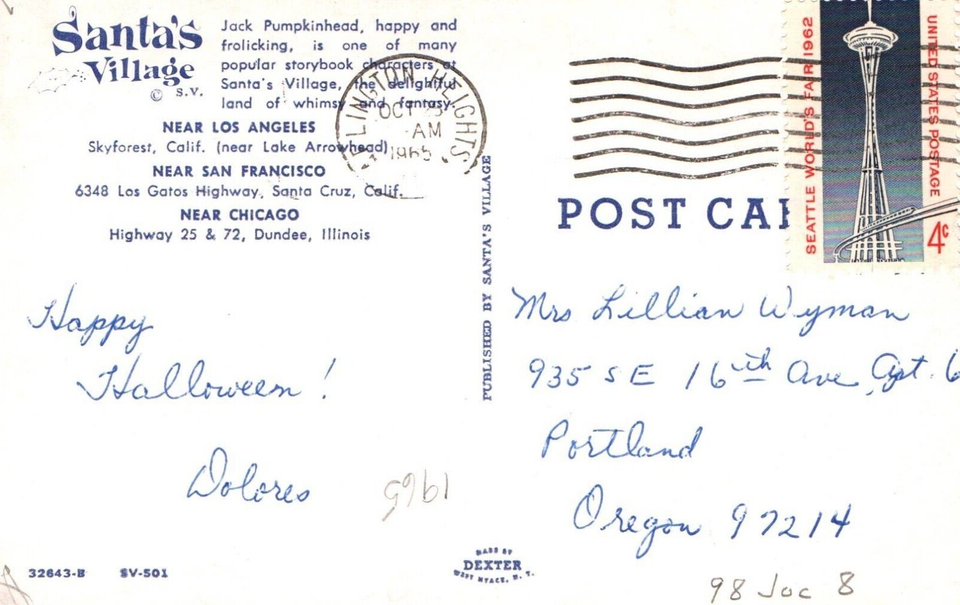 Santa's
Village
© S.V.
Jack Pumpkinhead, happy and
frolicking, is one of many
popular storybook characters at
Santa's Village, the delightful
land of whimsy and fantasy.
NEAR LOS ANGELES
Skyforest, Calif. (near Lake Arrowhead)
NEAR SAN FRANCISCO
6348 Los Gatos Highway, Santa Cruz, Calif.
NEAR CHICAGO
Highway 25 & 72, Dundee, Illinois
LINGTON HEIGHTS
OCT
AM
1965
SEATTLE WORLD'S FAIR 1962
UNITED STATES POSTAGE
4¢
POST CAR
PUBLISHED BY SANTA'S VILLAGE
Happy
Halloween!
Dolores
1965
Mrs Lillian Wyman
935 SE 16th Ave Apt. 6
Portland
Oregon 97214
32643-B SV-501
MADE BY
DEXTER
WEST NYACK, N. Y.
98 Joc 8